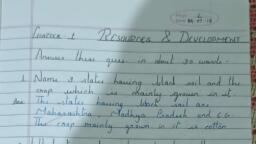 Chapter - 1 RESOURCES & DEVELOPMENT
Answer these ques in about 30 words -
1. Name 3 states having black soil and the
crop which is mainly grown in it
Ans The states having black soil are
Maharashtra, Madhya Pradesh and C.G.
The crop mainly grown in it is cotton